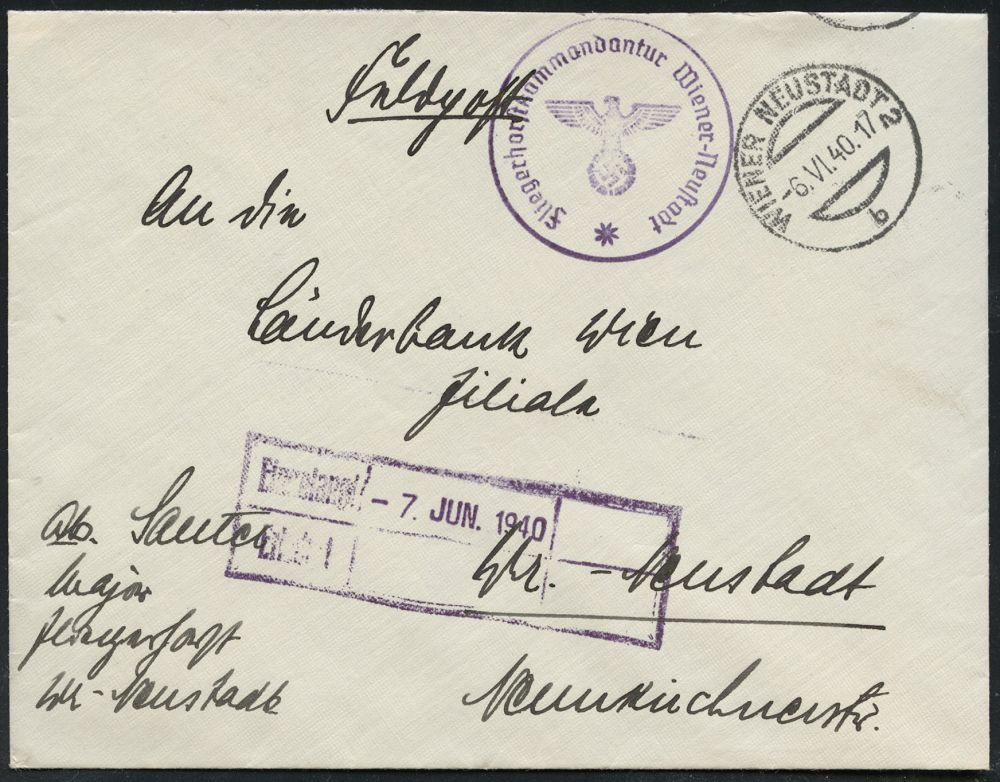 Feldpost
Fliegerhorstkommandantur Wiener-Neustadt
WIENER NEUSTADT 2
-6.VI.40.17
b
An die
Länderbank Wien
Filiale
Eingelangt
- 7. JUN. 1940
Wr.-Neustadt
Neunkirchnerstr.
Ab. Sauter
Major
Fliegerhorst
Wr-Neustadt